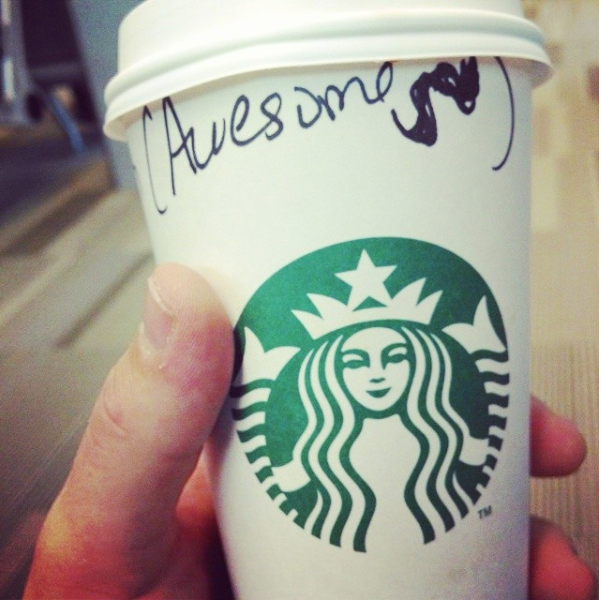 (Awesome )
TM